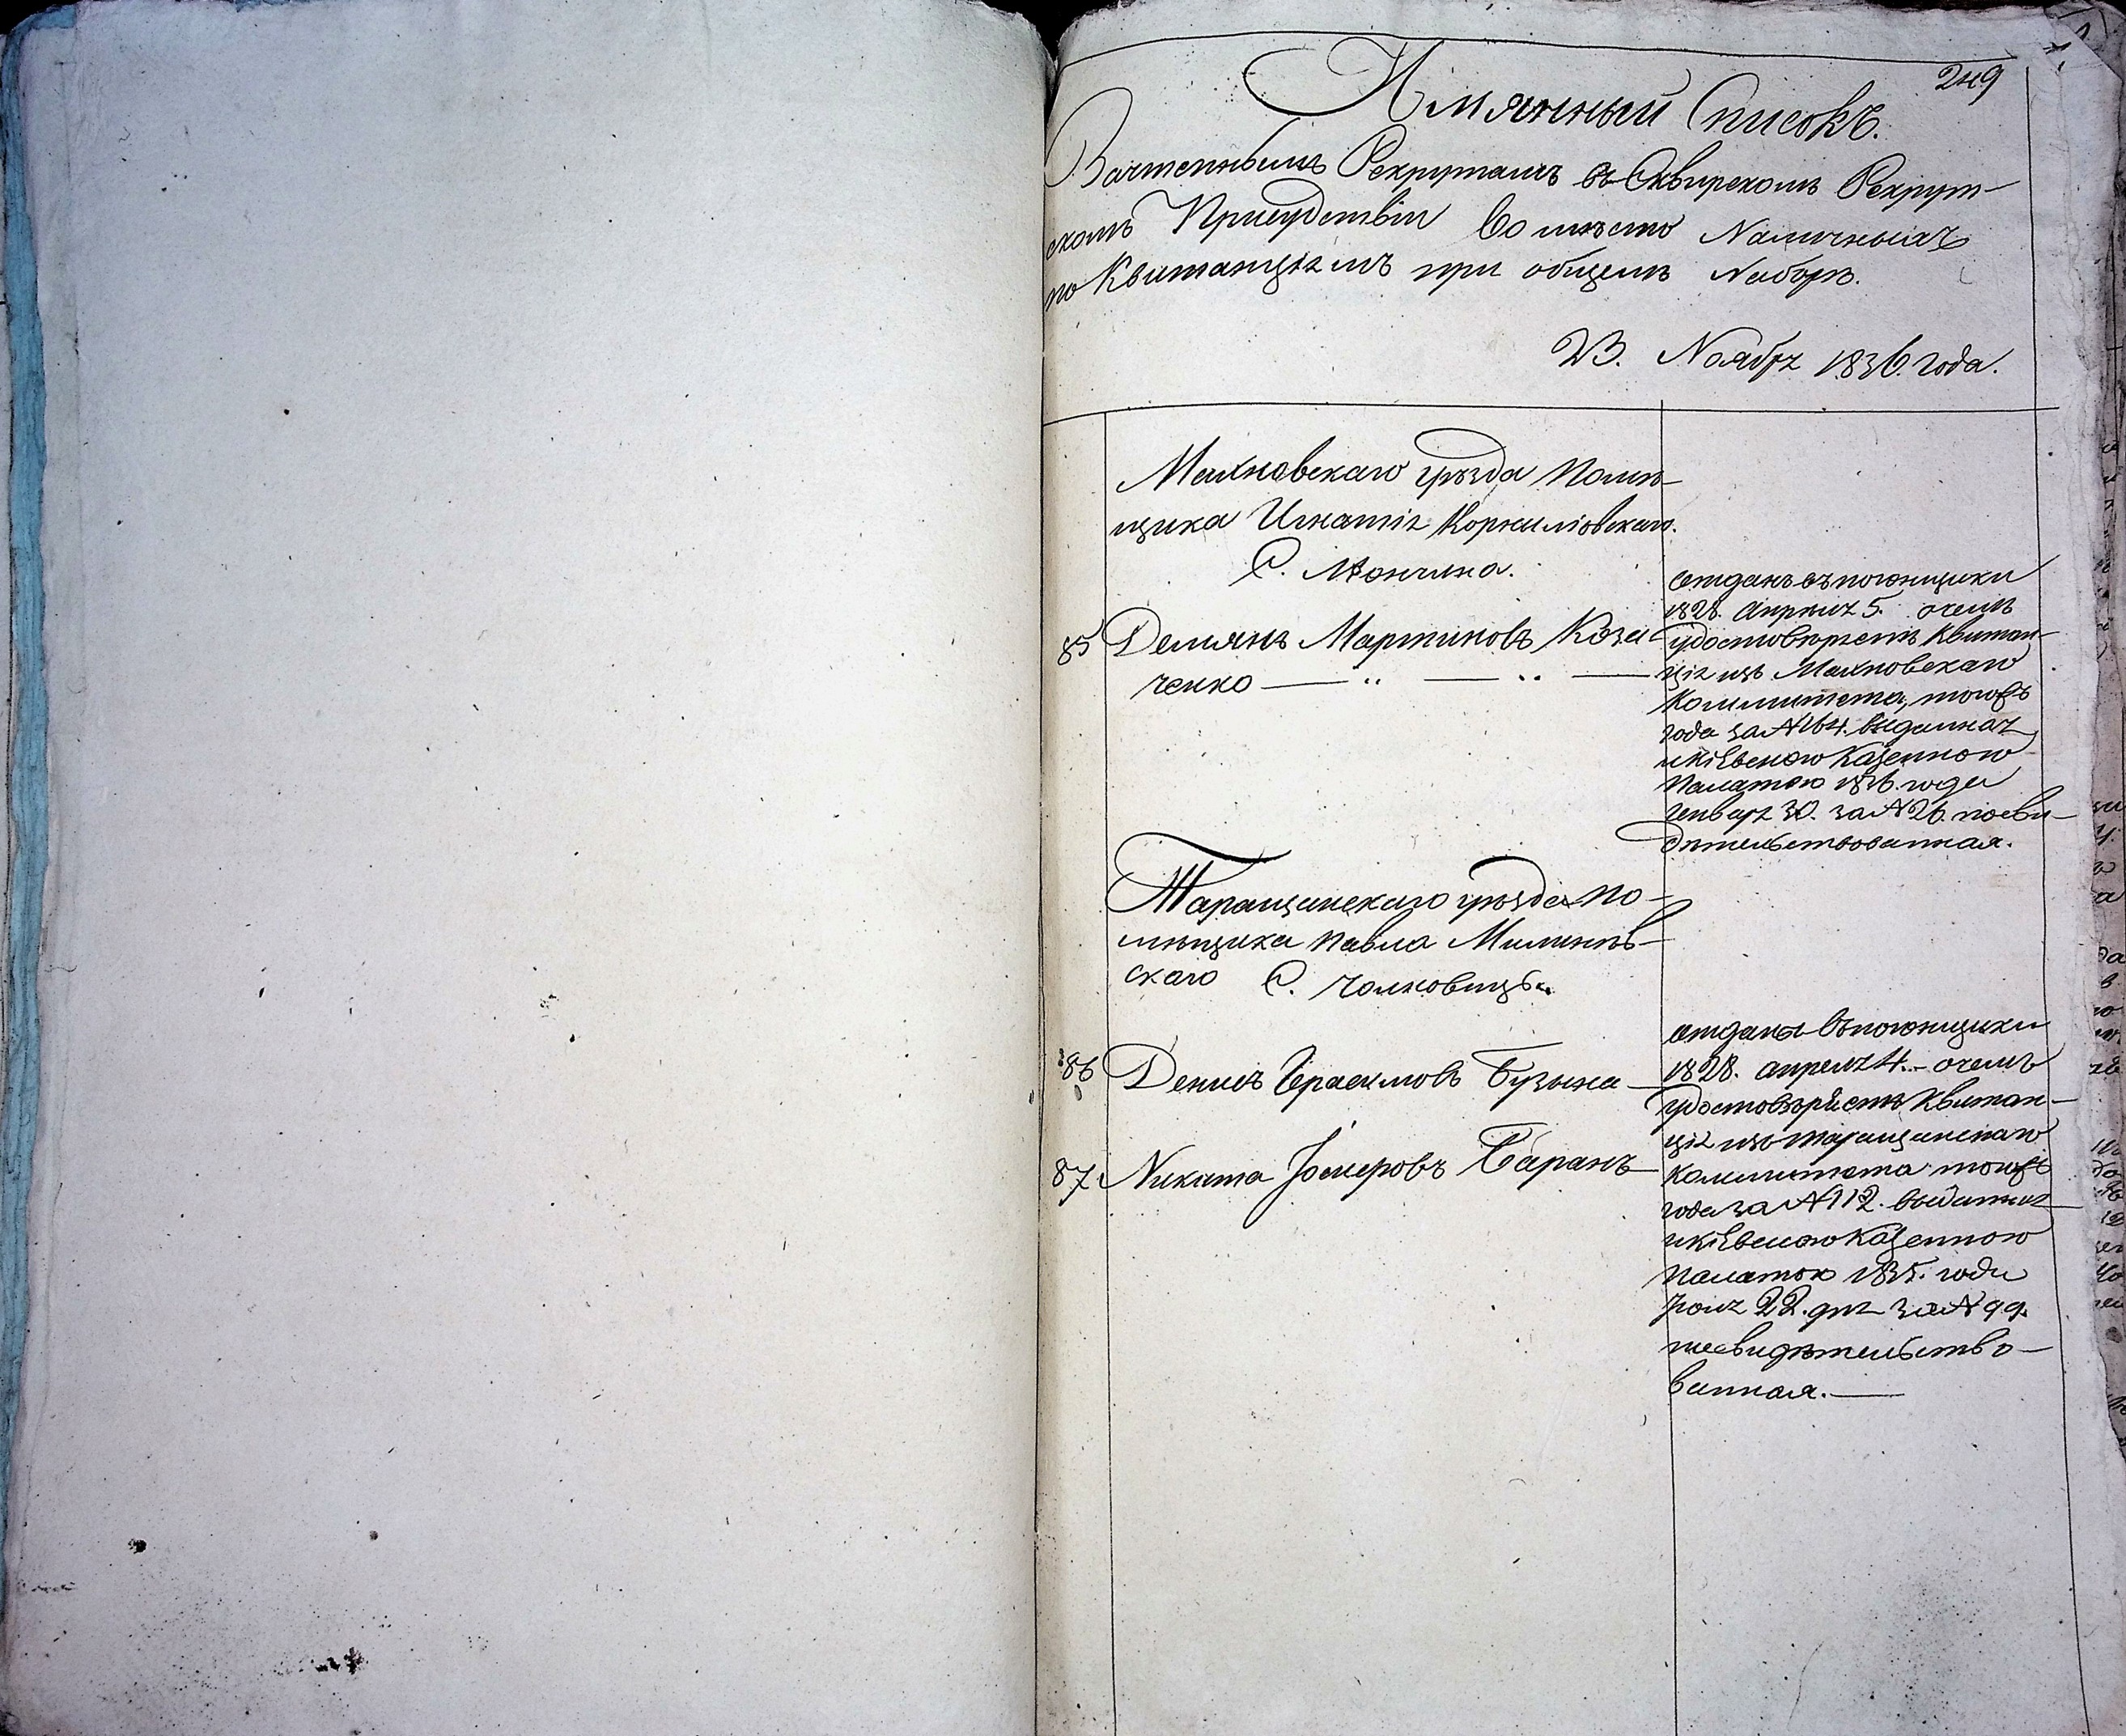 249
Имянный Списокъ.
Зачтеннымъ Рекрутамъ въ Сквирскомъ Рекрут-
скомъ Присудствіи Во мѣсто Наличныхъ
по Квитанціямъ при общемъ Наборѣ.
23. Ноября 1836. года.
Махновскаго уѣзда Помѣ-
щика Игнатія Корниловскаго.
С. Мончина.
85 Демянъ Мартиновъ Коза-
ченко — „ — „ —
отданъ въ погонщики
1828. Апрѣля 5. о чемъ
удостовѣряетъ Квитан-
ція изъ Махновскаго
Коммитета, тогожъ
года за №164. выданная
и Кіевскою Казенною
Палатою 1836. года
Генваря 30. за №26. посви-
дѣтельствованная.
Таращанскаго уѣзда По-
мѣщика Павла
скаго С.
86 Денисъ Герасимовъ Бузына
87. Никита Баранъ
отданы въ погонщики
1828. апреля 4. о чемъ
удостовѣряетъ Квитан-
ція изъ Таращанскаго
Коммитета тогожъ
года за №112. выданная
и Кіевскою Казенною
Палатою 1835. года
Іюля 22. дня за №99.
посвидѣтельство-
ванная.—